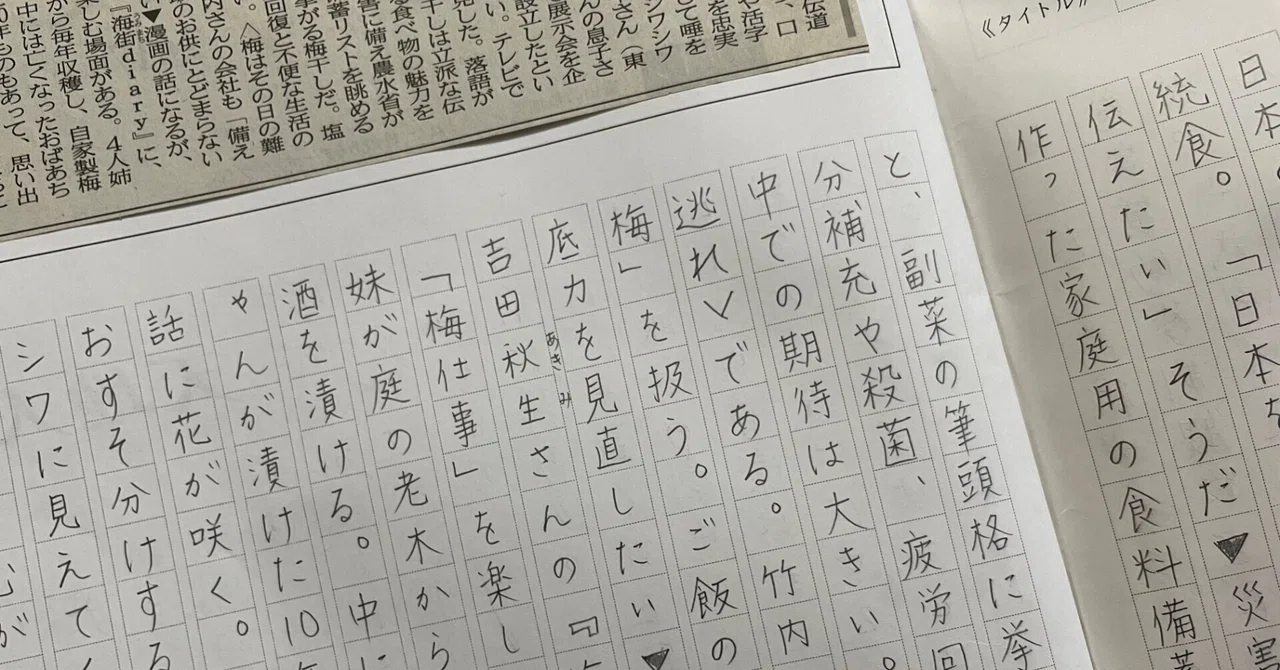 伝道
、ロ
や活字
を忠実
して唾を
シワシワ
さん（東
んの息子さ
展示会を企
設立したとい
い。テレビで
見した。落語が
干しは立派な伝
る食べ物の魅力を
害に備え農水省が
蓄リストを眺める
挙がる梅干しだ。塩
回復と不便な生活の
い。〈梅はその日の難
内さんの会社も「備え
のお供にとどまらない
い▼漫画の話になるが、
『海街diary』に、
楽しむ場面がある。4人姉
から毎年収穫し、自家製梅
中には亡くなったおばあち
年ものもあって、思い出
《タイトル》
日本
統食。「日本を
伝えたい」そうだ▼災害
作った家庭用の食料備蓄
と、副菜の筆頭格に挙
分補充や殺菌、疲労回
中での期待は大きい。
逃れ〉である。竹内
梅」を扱う。ご飯の
底力を見直したい▼
吉田秋生さんの『
あきみ
「梅仕事」を楽し
妹が庭の老木から
酒を漬ける。中に
ゃんが漬けた10年
話に花が咲く。
おすそ分けする
シワに見えてく